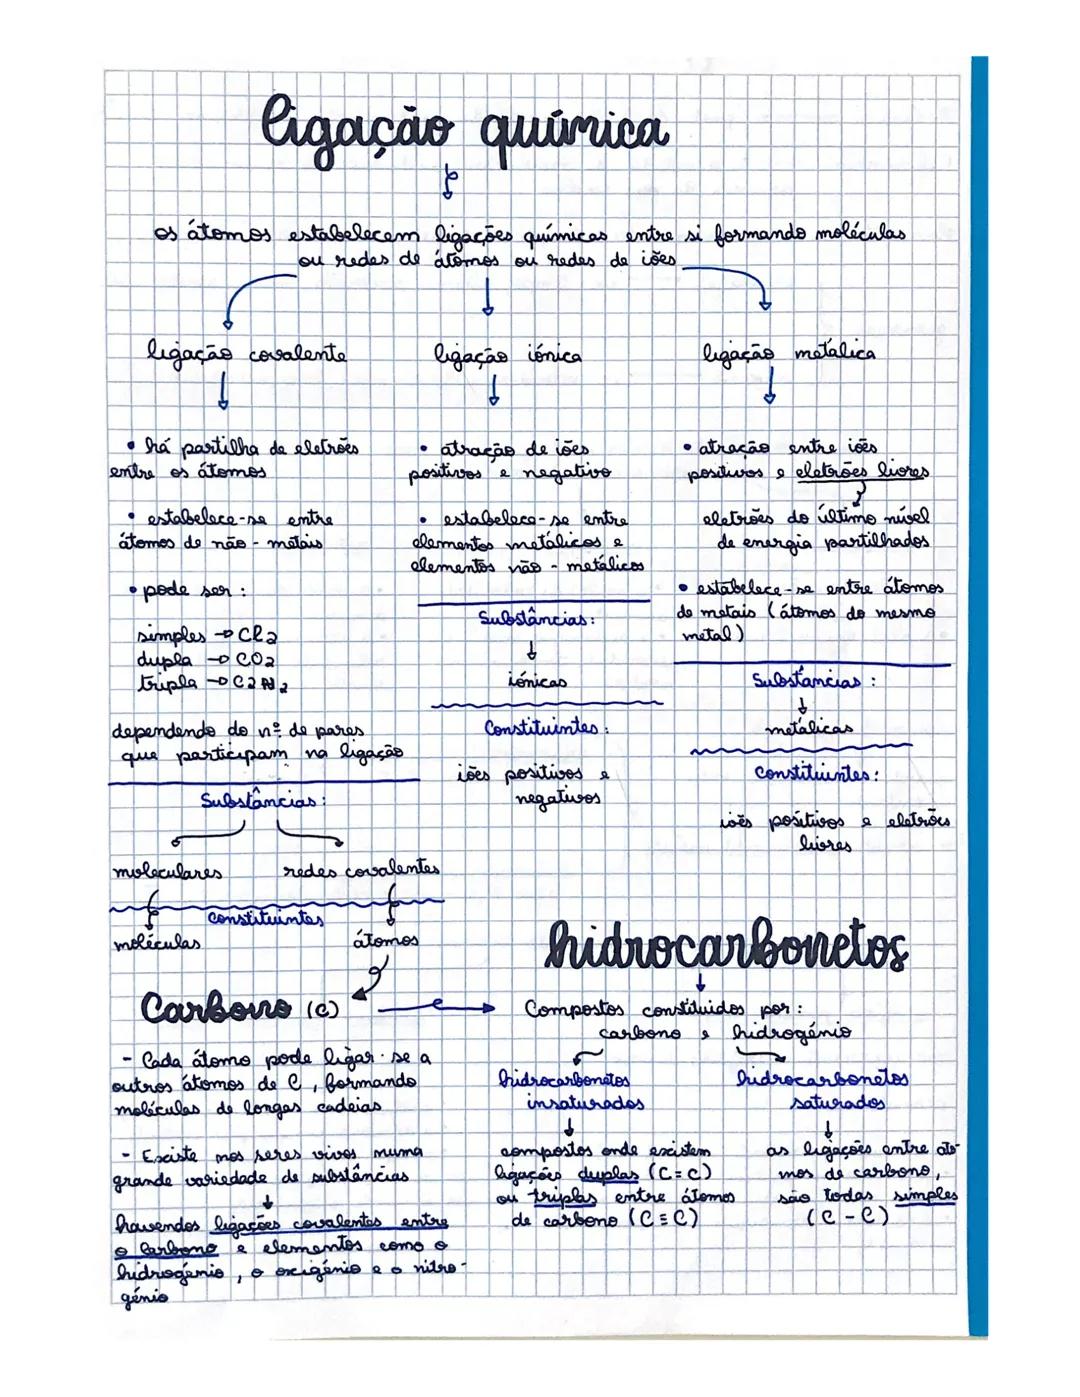 ligação química
os átomos estabelecem ligações químicas entre si formando moléculas
ou redes de átomos ou redes de iões
ligação covalente
• há partilha de eletrões
entre os átomos
• estabelece-se entre
átomos de não-metais
• pode ser:
simples → Cl2
dupla → CO2
tripla → C2N2
dependendo do nº de pares
que participam na ligação
Substâncias:
moleculares
redes covalentes
constituintes
moléculas
átomos
ligação iónica
• atração de iões
positivos e negativo
• estabelece-se entre
elementos metálicos e
elementos não-metálicos
Substâncias:
iónicas
Constituintes:
iões positivos e
negativos
ligação metálica
• atração entre iões
positivos e eletrões livres
eletrões do último nível
de energia partilhados
• estabelece-se entre átomos
de metais (átomos do mesmo
metal)
Substâncias:
metálicas
Constituintes:
iões positivos e eletrões
livres
Carbono (C)
- Cada átomo pode ligar-se a
outros átomos de C, formando
moléculas de longas cadeias
- Existe nos seres vivos numa
grande variedade de substâncias
havendos ligações covalentes entre
o Carbono e elementos como o
hidrogénio, o oxigénio e o nitro-
génio
hidrocarbonetos
Compostos constituidos por:
carbono e hidrogénio
hidrocarbonetos
insaturados
compostos onde existem
ligações duplas (C=C)
ou triplas entre átomos
de carbono (C≡C)
hidrocarbonetos
saturados
as ligações entre áto-
mos de carbono,
são todas simples
(C-C)